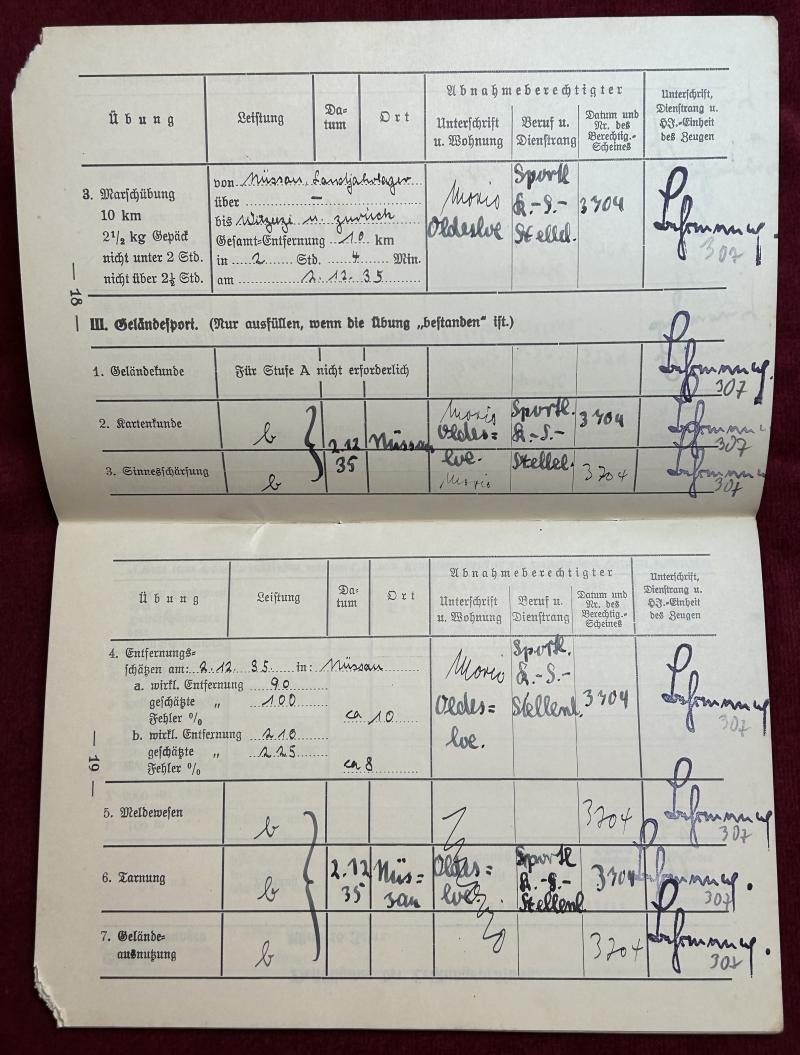 Übung
Leistung
Da=
tum
Ort
Abnahmeberechtigter
Unterschrift
u. Wohnung
Beruf u.
Dienstrang
Datum und
Nr. des
Berechtig.-
Scheines
Unterschrift,
Dienstrang u.
HJ.-Einheit
des Zeugen
3. Marschübung
10 km
2½ kg Gepäck
nicht unter 2 Std.
nicht über 2½ Std.
von Nüssau, Landjahrlager
über –
bis u. zurück
Gesamt=Entfernung 10 km
in 2 Std. 4 Min.
am 2.12.35
Sportl.
L.-S.-
3704
307
— 18 —
III. Geländesport. (Nur ausfüllen, wenn die Übung „bestanden“ ist.)
1. Geländekunde
Für Stufe A nicht erforderlich
307
2. Kartenkunde
b
2.12
35
Nüssau
Oldes=
loe.
Sportl.
L.-S.-
3704
307
3. Sinnesschärfung
b
3704
307
Übung
Leistung
Da=
tum
Ort
Abnahmeberechtigter
Unterschrift
u. Wohnung
Beruf u.
Dienstrang
Datum und
Nr. des
Berechtig.-
Scheines
Unterschrift,
Dienstrang u.
HJ.-Einheit
des Zeugen
4. Entfernungs=
schätzen am: 2.12.35. in: Nüssau
a. wirkl. Entfernung 90
geschätzte „ 100
Fehler % ca 10
b. wirkl. Entfernung 210
geschätzte „ 225
Fehler % ca 8
Oldes=
loe.
Sportl.
L.-S.-
Stellenl.
3704
307
— 19 —
5. Meldewesen
b
3704
307
6. Tarnung
b
2.12
35
Nüs=
sau
Oldes=
loe.
Sportl.
L.-S.-
Stellenl.
3704
307
7. Gelände=
ausnutzung
b
3704
307